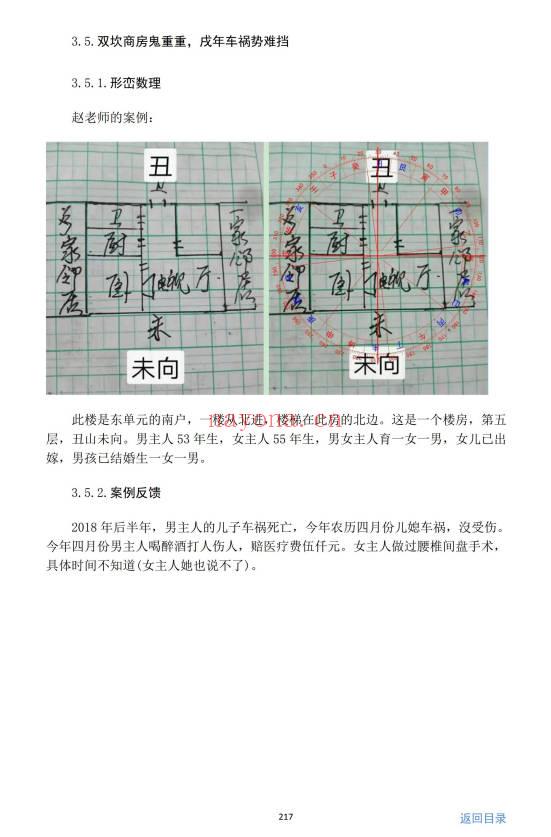 3.5.双坎商房鬼重重，戌年车祸势难挡
3.5.1.形峦数理
赵老师的案例：
丑
卫
厨
卧
电视
厅
未
未向
丑
卫
厨
卧
电视
厅
未
未向
此楼是东单元的南户，一楼从北进，楼梯在此房的北边。这是一个楼房，第五
层，丑山未向。男主人 53 年生，女主人 55 年生，男女主人育一女一男，女儿已出
嫁，男孩已结婚生一女一男。
3.5.2.案例反馈
2018 年后半年，男主人的儿子车祸死亡，今年农历四月份儿媳车祸，沒受伤。
今年四月份男主人喝醉酒打人伤人，赔医疗费伍仟元。女主人做过腰椎间盘手术，
具体时间不知道(女主人她也说不了)。
217
返回目录